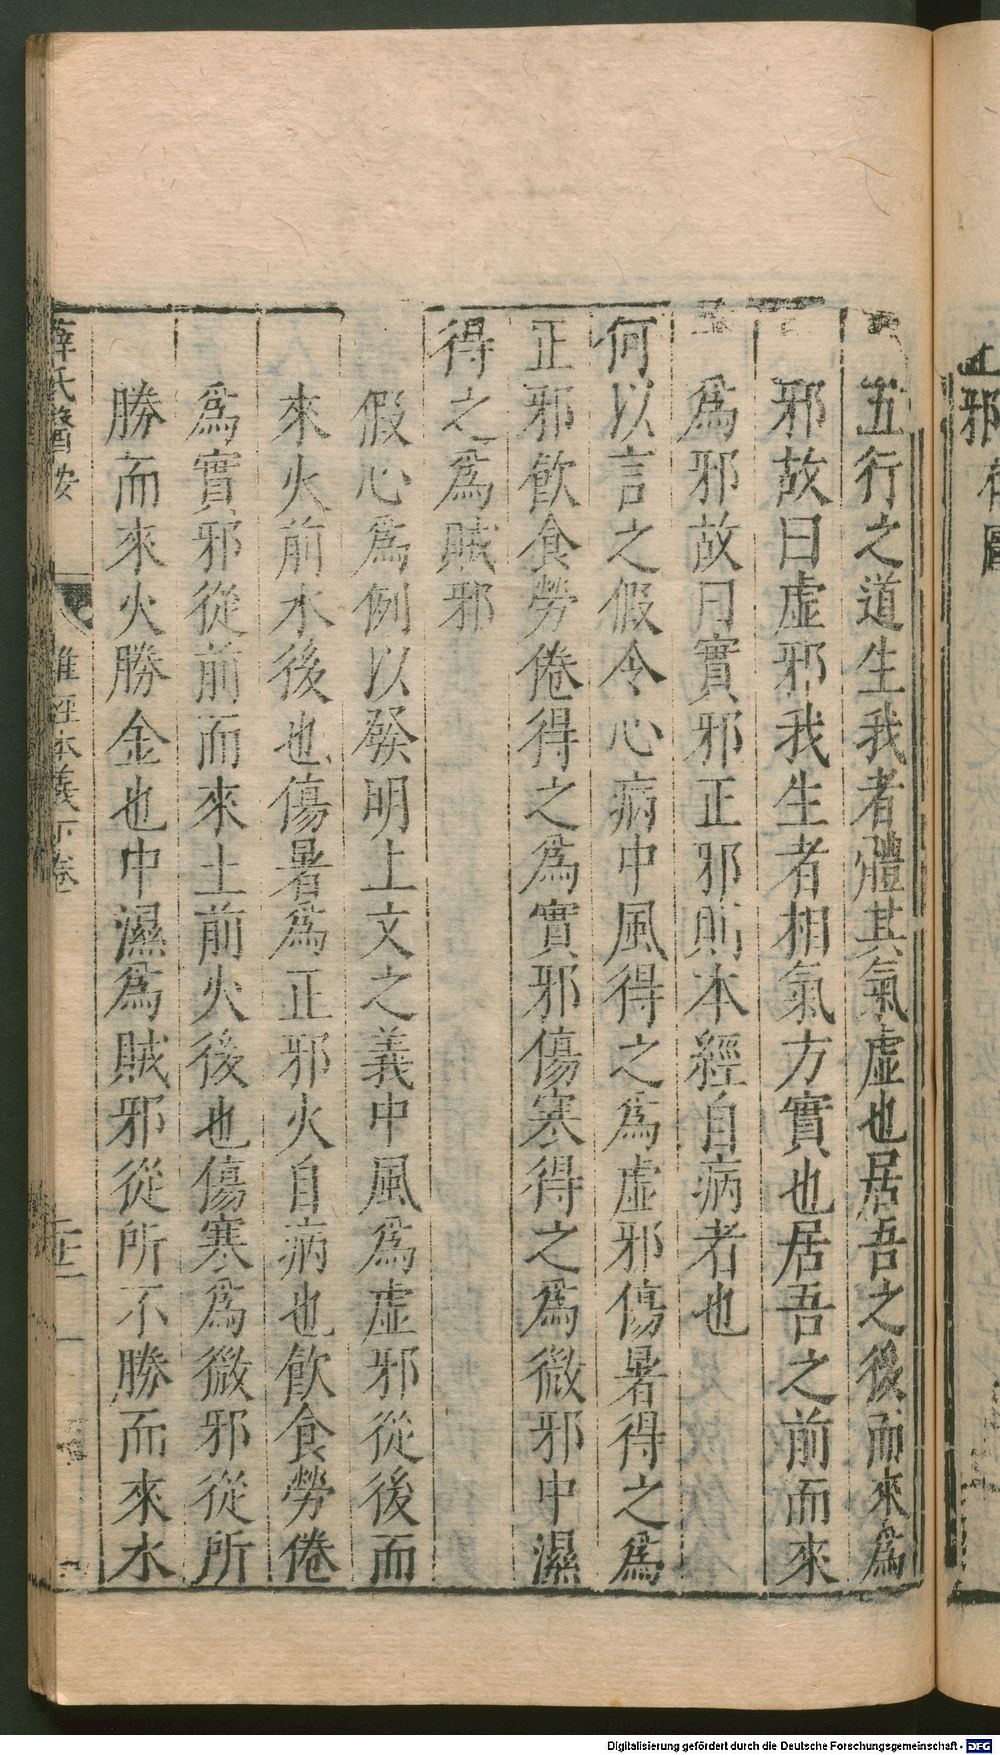 五行之道生我者體其氣虛也居吾之後而來為
邪故曰虛邪我生者相氣方實也居吾之前而來
為邪故曰實邪正邪則本經自病者也
何以言之假令心病中風得之為虛邪傷暑得之為
正邪飲食勞倦得之為實邪傷寒得之為微邪中濕
得之為賊邪
假心為例以發明上文之義中風為虛邪從後而
來火前木後也傷暑為正邪火自病也飲食勞倦
為實邪從前而來土前火後也傷寒為微邪從所
勝而來火勝金也中濕為賊邪從所不勝而來水
薛氏醫按
難經本義下卷
Digitalisierung gefördert durch die Deutsche Forschungsgemeinschaft - DFG